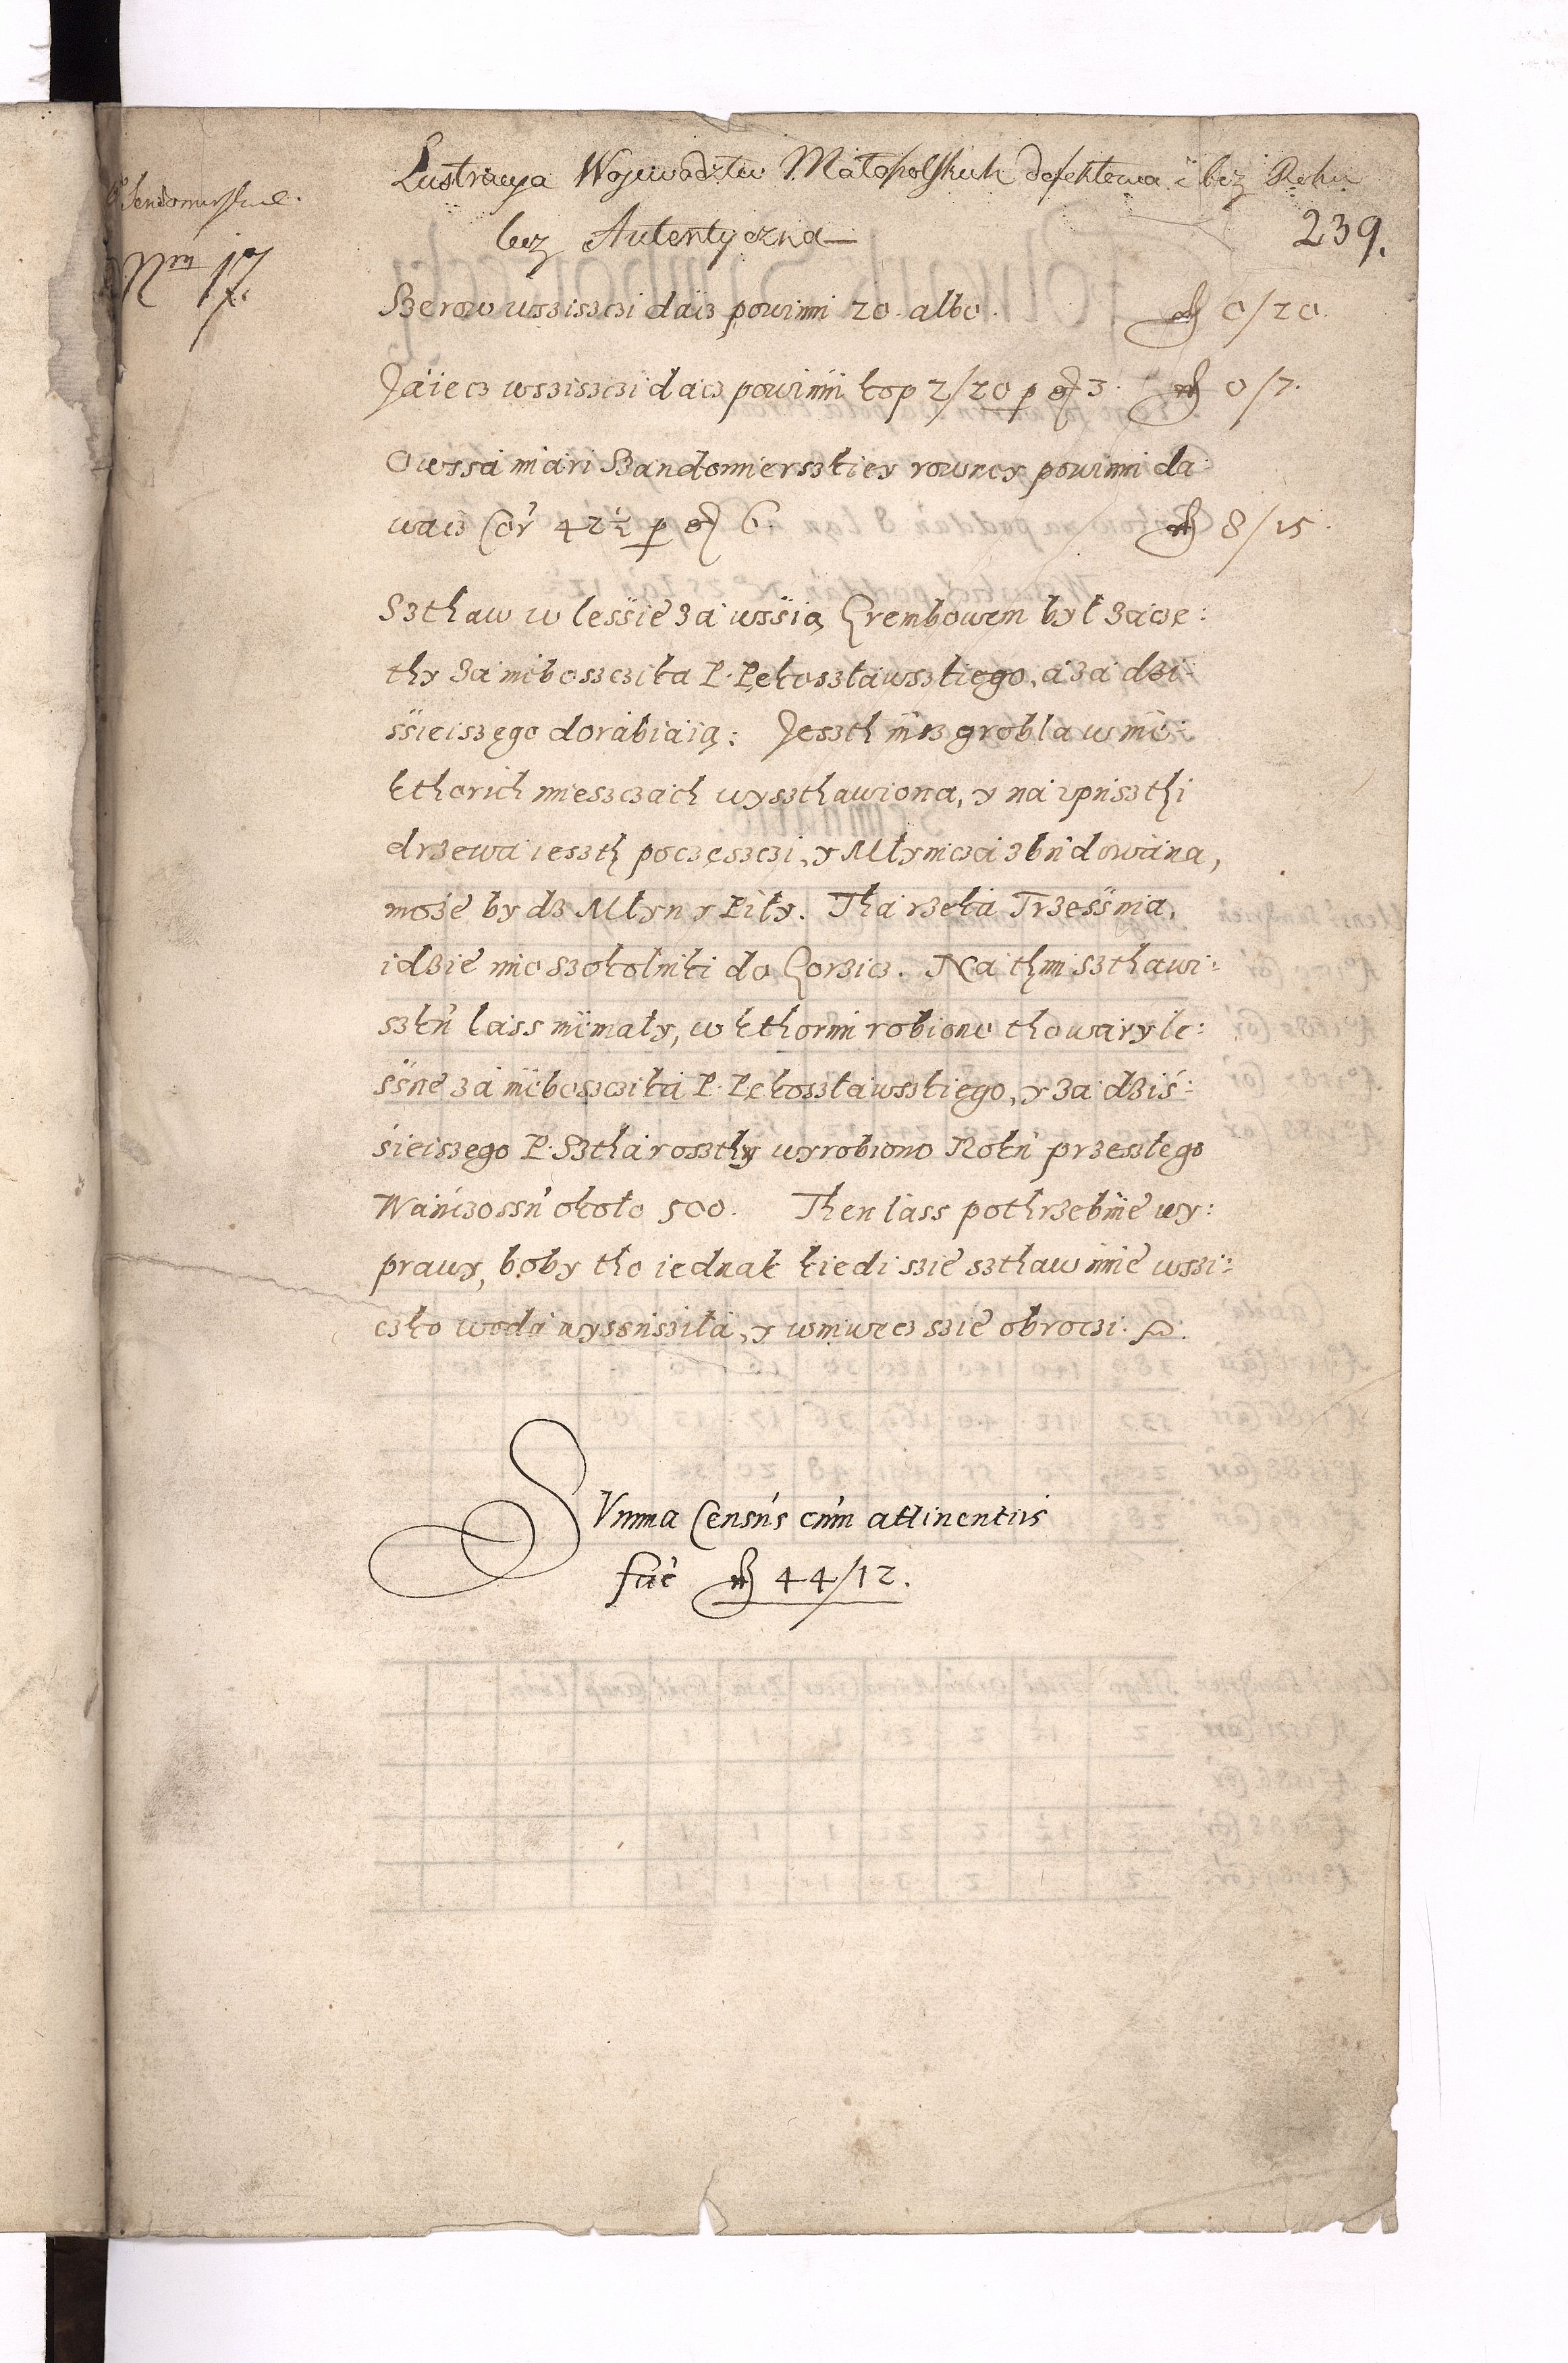 Lustracya Wojewodztw Małopolskich defektowa i bez Roku
bez Autentyczna
239.
Sendomirskie.
Nro 17
Szerow wsziszczi dacz powinni 20. albo. fl 0/20.
Jaiecz wsziszczi dacz powinni kop 2/20 p gr 3. fl 0/7.
Owssa miari Szandomierszkiey rowney powinni da
wacz Cor 42½ p gr 6. fl 8/15.
Szthaw w lessie za wssią Grembowem był zacze:
thy za nieboszczika P. Pękoszławszkiego, a za dzi:
ssieiszego dorabiaią: Jeszth iusz grobla w nie:
kthorich mieszczach wyszthawiona, y na upuszthi
drzewa ieszth poczęszczi, y Młynicza zbudowana,
może bydz Młyn y Piły. Tha rzeka Trzessnia,
idzie mio Szokolniki do Gorzicz. Na thim szthawi:
szku lass niemały, w kthorim robiono thowary le:
ssne za nieboszczika P. Pękoszławszkiego, y za dziś:
śieiszego P. Sztharoszthy wyrobiono Roku przeszłego
Wańczossu około 500. Then lass pothrzebuie wy:
prawy, boby tho iednak kiedi szie szthaw uimie wszi:
czko woda wyssusziła, y wniwecz szie obroczi.
SVmma Censûs cum attinentiis
facit fl 44/12.